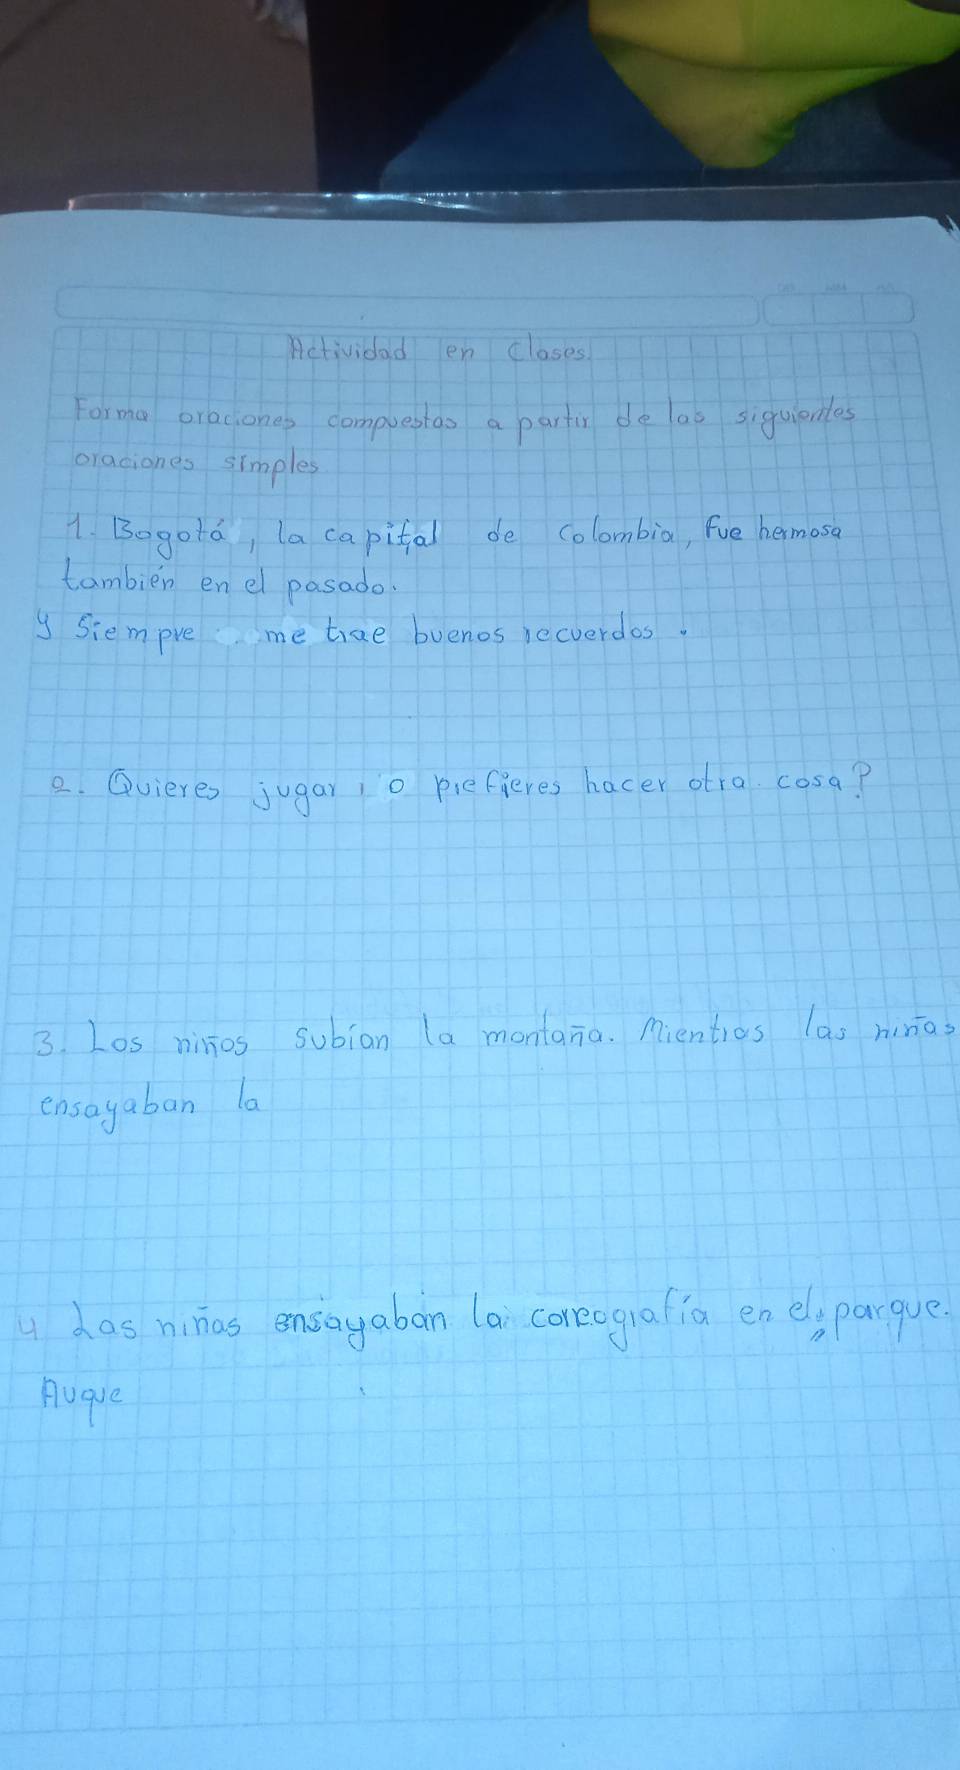 Actividad en Clases.
Forma oraciones compuestas a partir de las siguientes
oraciones simples
1. Bogotá, la capital de Colombia, fue hermosa
también en el pasado.
y Siempre me trae buenos recuerdos.
2. Quieres jugar, o prefieres hacer otra cosa?
3. Los niños subían la montaña. Mientras las niñas
ensayaban la
4 Las niñas ensayaban la coreografía en el parque.
Auque